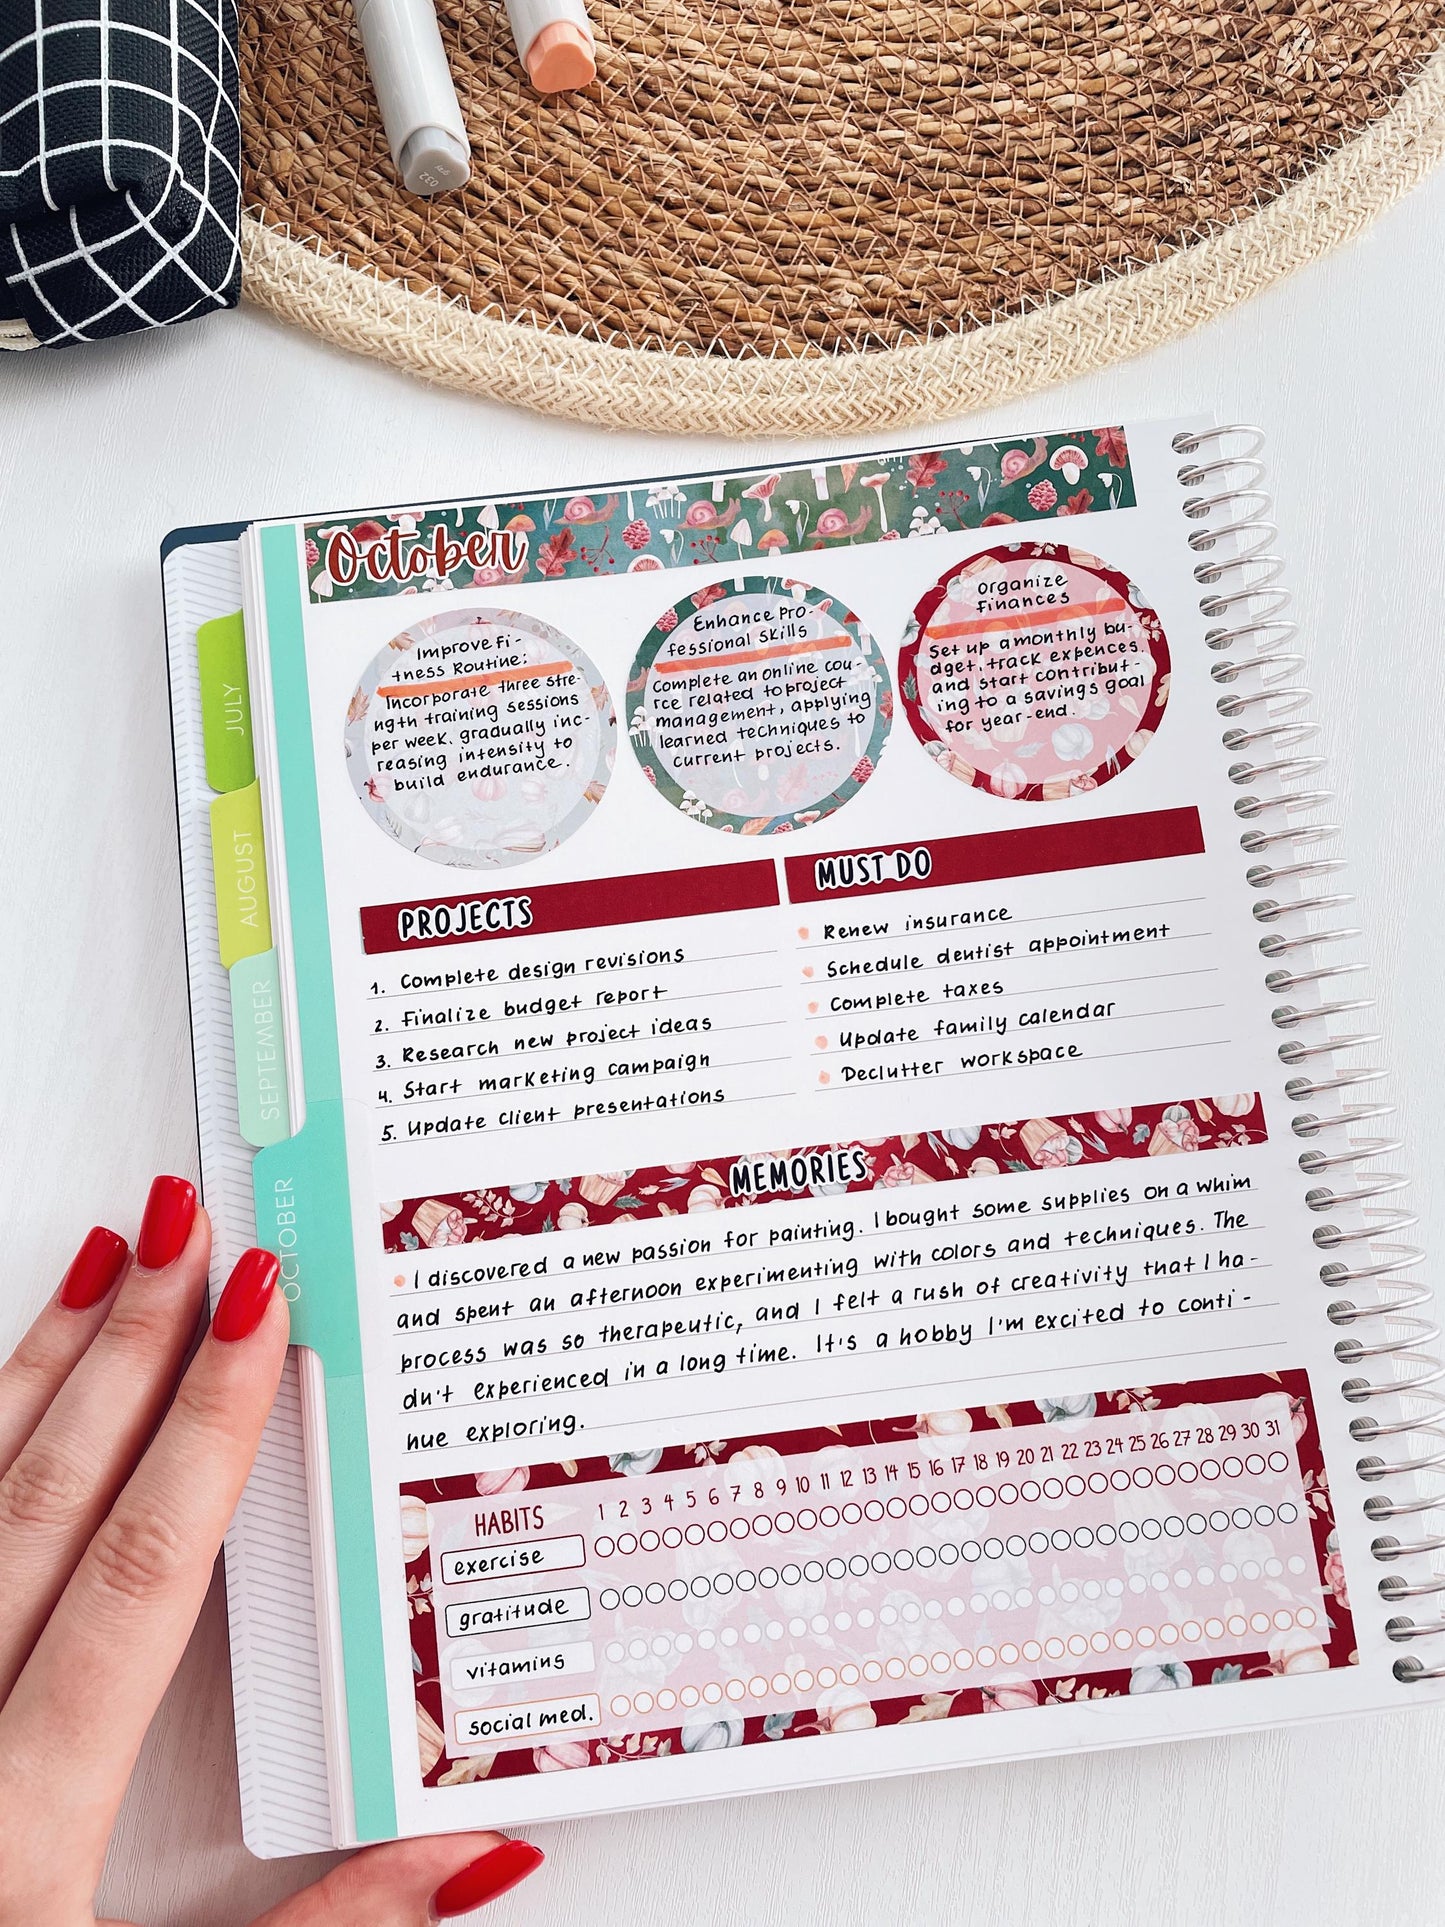 032
gry
October
Improve Fi-
tness Routine:
Incorporate three stre-
ngth training sessions
per week, gradually inc-
reasing intensity to
build endurance.
Enhance Pro-
fessional Skills
Complete an online cou-
rce related to project
management, applying
learned techniques to
current projects.
Organize
Finances
Set up a monthly bu-
dget, track expences,
and start contribut-
ing to a savings goal
for year-end.
JULY
AUGUST
SEPTEMBER
OCTOBER
PROJECTS
1. Complete design revisions
2. Finalize budget report
3. Research new project ideas
4. Start marketing campaign
5. Update client presentations
MUST DO
Renew insurance
Schedule dentist appointment
Complete taxes
Update family calendar
Declutter workspace
MEMORIES
I discovered a new passion for painting. I bought some supplies on a whim
and spent an afternoon experimenting with colors and techniques. The
process was so therapeutic, and I felt a rush of creativity that I ha-
dn't experienced in a long time. It's a hobby I'm excited to conti-
nue exploring.
HABITS 1 2 3 4 5 6 7 8 9 10 11 12 13 14 15 16 17 18 19 20 21 22 23 24 25 26 27 28 29 30 31
exercise
gratitude
vitamins
social med.